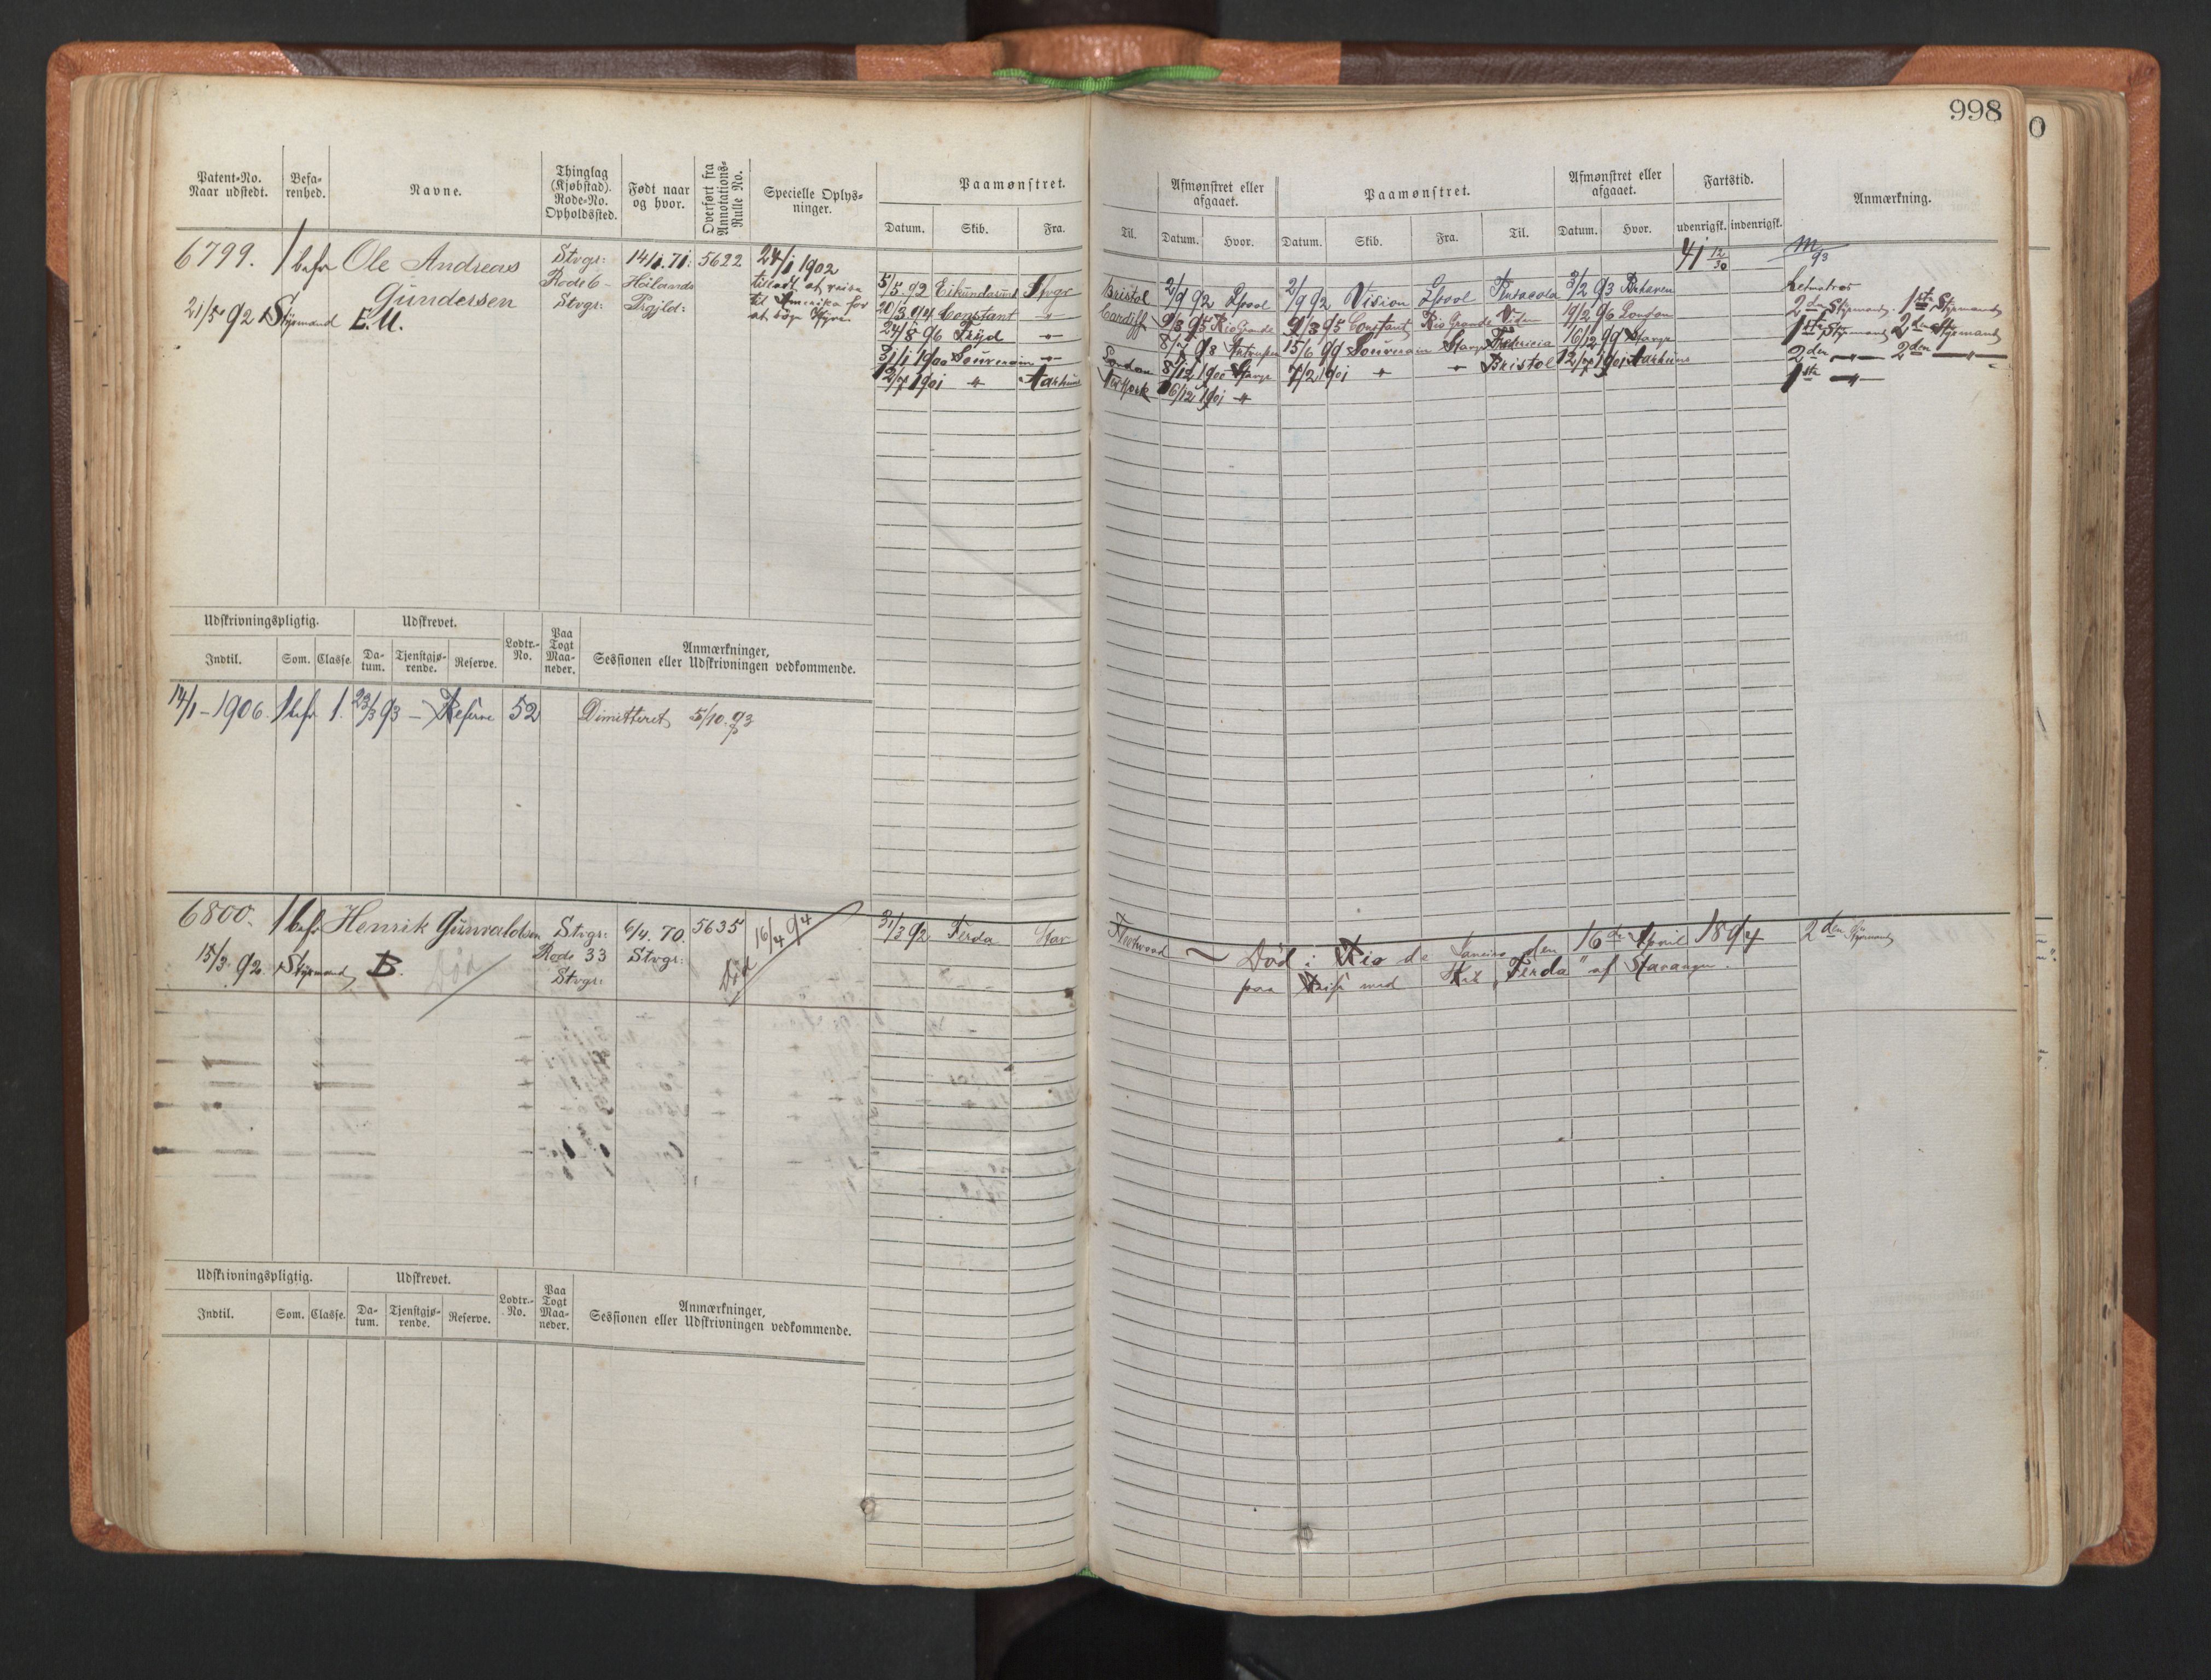 998
0
Patent-No. Naar udstedt.
Befa-renhed.
Navne.
Thinglag (Kjøbstad). Rode-No. Opholdssted.
Født naar og hvor.
Overført fra Annotations-Rulle No.
Specielle Oplys-ninger.
Paamønstret.
Datum. Skib. Fra.
Til.
Afmønstret eller afgaaet.
Datum. Hvor.
Paamønstret.
Datum. Skib. Fra. Til.
Afmønstret eller afgaaet.
Datum. Hvor.
Fartstid.
udenrigsk. indenrigsk.
Anmærkning.
6799. 1 befr Ole Andreas Stvgr: 14/1. 71. 5622 24/1 1902
Gundersen Rode 6 - Hölands tilladt at reise
21/5 92 Styrmand E.M. Stvgr: Prgjld: til Amerika for
at söge Hyre
41 12/30
M 93
5/5 92 Eikundasund Stvgr Bristol 2/9 92 Lpool 2/9 92 Vision Lpool Pensacola 3/2 93 Brhaven Letmatros
20/3 94 Constant " Cardiff 9/3 95 Rio Grande 9/3 95 Constant Rio Grande 19/2 96 London 2den Styrmand 1ste Styrmand
24/8 96 Fryd " 15/6 99 Souverain Stavgr Fredricia 16/12 99 Stavgr 1ste Styrmand 2den Styrmand
31/1 1900 Souverain " London 8/12 1900 Stavgr 7/2 1901 " " Bristol 12/7 1901 Aarhuus 2den " 2den "
12/7 1901 " Aarhuus 16/12 1901 " 1ste "
Udskrivningspligtig. Udskrevet. Lodtr.-No. Paa Togt Maa-neder. Anmærkninger, Sessionen eller Udskrivningen vedkommende.
Indtil. Som. Classe. Da-tum. Tjenstgjø-rende. Reserve.
14/1 - 1906. 1 befr 1. 23/3 93 - Reserve 52 Dimitteret 5/10. 93
6800. 1 befr Henrik Gunvaldsen Stvgr: 6/4. 70. 5635 Död 16/4 94 31/3 92 Ferda Stav Fleetwood Död i Rio de Janeiro den 16de April 1894 2den Styrmand
15/3. 92. Styrmand B. Död Rode 33 Stvgr: paa Reise med Skib "Ferda" af Stavanger.
Stvgr:
Udskrivningspligtig. Udskrevet. Lodtr.-No. Paa Togt Maa-neder. Anmærkninger, Sessionen eller Udskrivningen vedkommende.
Indtil. Som. Classe. Da-tum. Tjenstgjø-rende. Reserve.